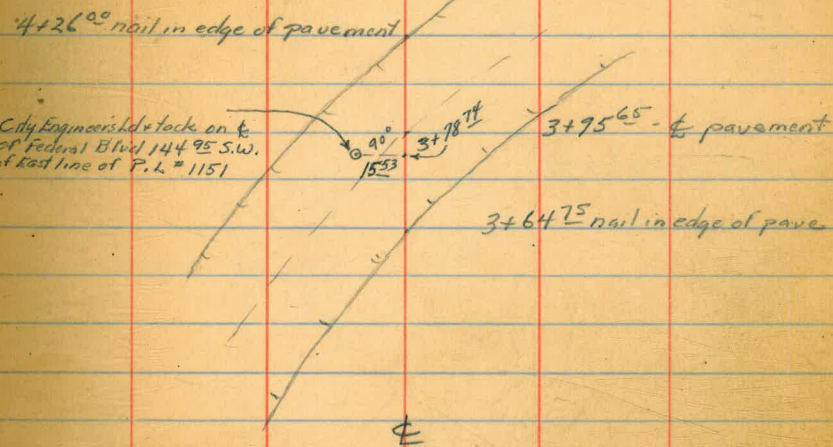 4+26⁰⁰ nail in edge of pavement
City Engineers Ld + tack on ℄
of Federal Blvd 144⁹⁵ S.W.
of East line of P.L #1151
90°
15⁵³
3+78⁷⁴
3+95⁶⁵ - ℄ pavement
3+64⁷⁵ nail in edge of pave
℄